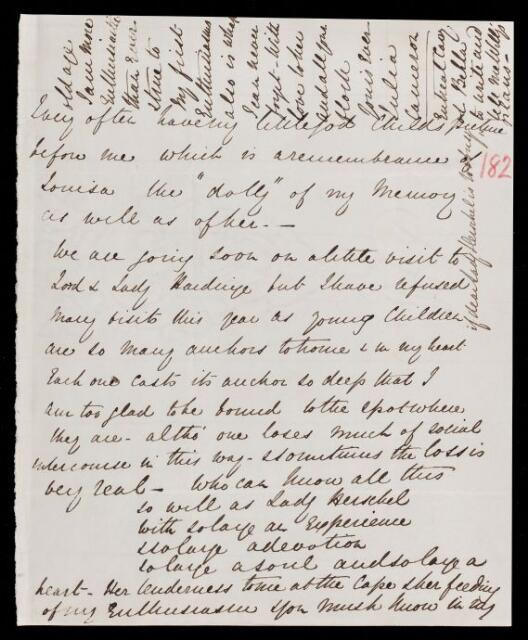 Every often having little God Child's picture
before me which is a remembrance of
Louisa the "dolly" of my Memory
as well as of her. —
We are going soon on a little visit to
Lord & Lady Hardinge but I have refused
Many visits this year as young Children
are so many anchors to home & in my heart
Each one casts its anchor so deep that I
am too glad to be bound to the spot where
they are - altho' one loses much of social
intercourse in this way - & sometimes the loss is
very real — Who can know all this
so well as Lady Herschel
with so large an Experience
so large a devotion
so large a soul and so large a
heart - Her tenderness to me at the Cape & her feeding
of my Enthusiasm you must know in my
old age
I am more
Enthusiastic
than Ever
true to
my first
Enthusiasms
also is what
I can never
forget - With
love to her
and all your
flock
Yours Ever
Julia
Cameron
Entreat Cary
& Bella
to write and
tell me Willy's
plans -
if dear Lady Herschel is
182